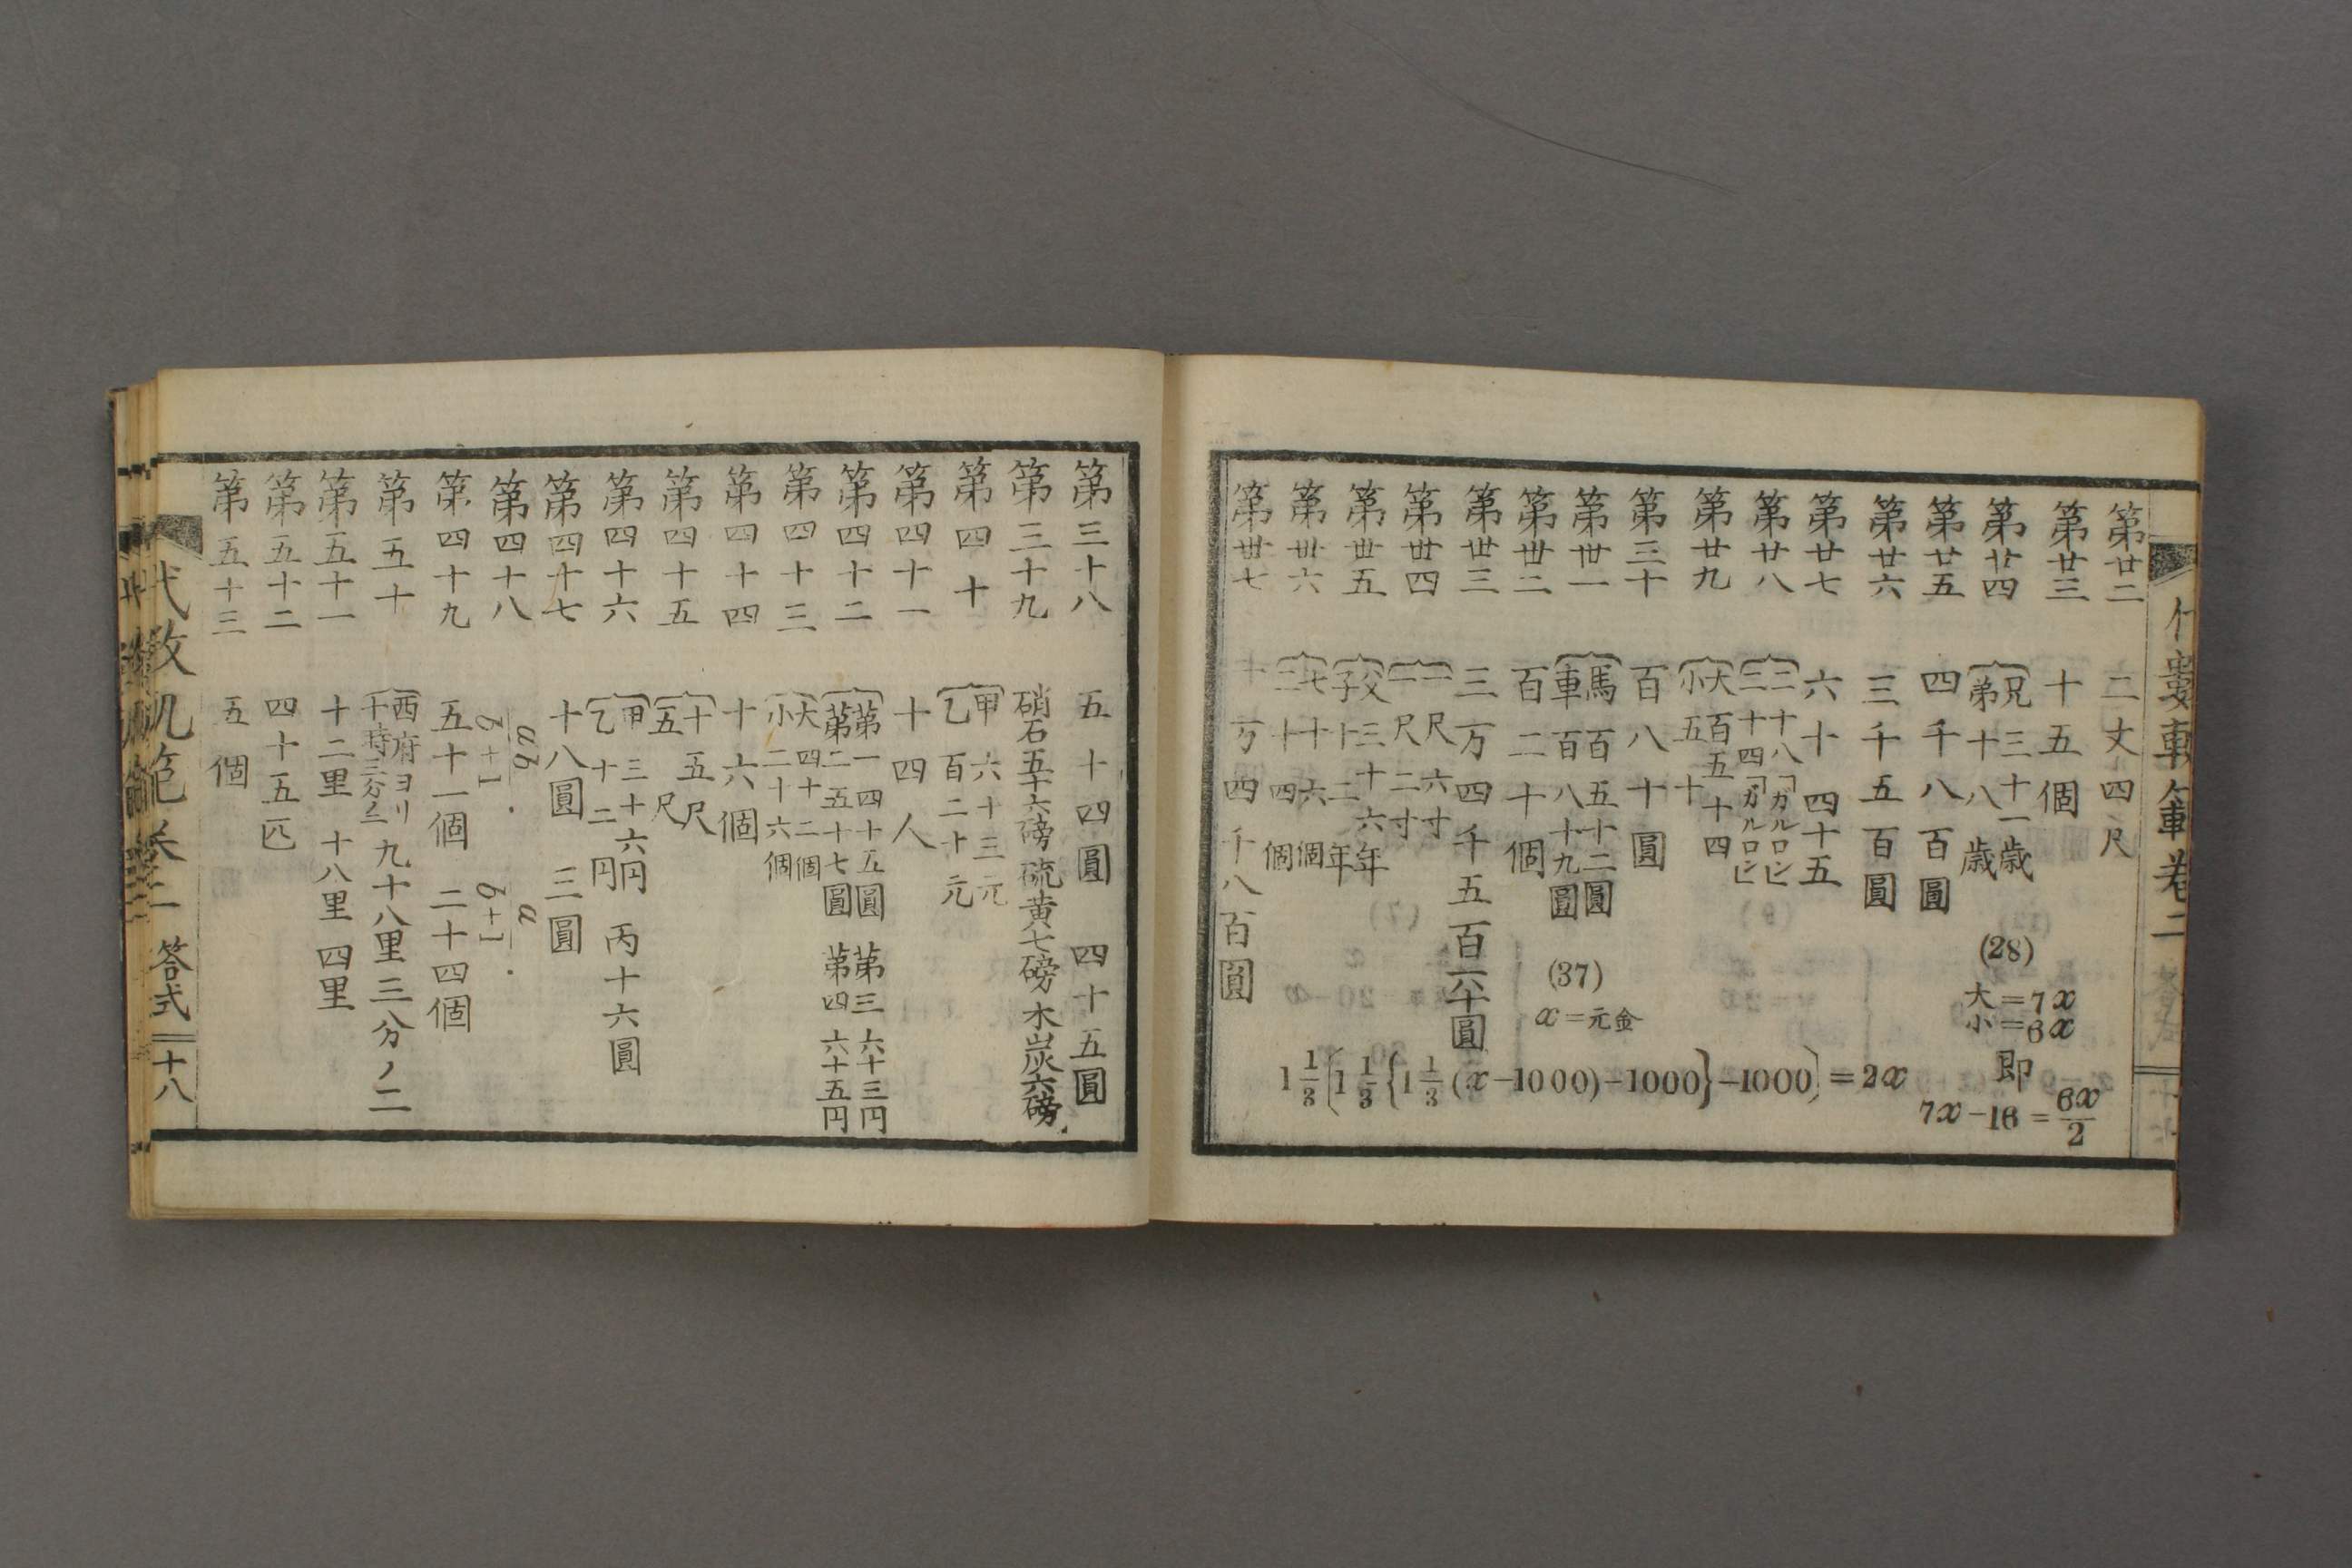 第廿二 二丈四尺
第廿三 十五個
第廿四 兄三十一歳 弟十八歳
第廿五 四千八百圓
第廿六 三千五百圓
第廿七 六十四 四十五
第廿八 二十八「ガルロン」 三十四「ガルロン」
第廿九 大百五十四 小五十
第三十 百八十圓
第丗一 馬百五十二圓 車百八十九圓
第丗二 百二十個
第丗三 三万四千五百六十圓
第丗四 一尺六寸 二尺二寸
第丗五 父三十六年 子十二年
第丗六 七十六個 二十四個
第丗七 十万四千八百圓
(28)
大=7x
小=6x
即
7x-16=6x/2
(37)
x=元金
1 1/3[1 1/3{1 1/3(x-1000)-1000}-1000]=2x
第三十八 五十四圓 四十五圓
第三十九 硝石五十六磅 硫黄七磅 木炭六磅
第四十 甲六十三元 乙百二十元
第四十一 十四人
第四十二 第一四十五圓 第二五十七圓 第三六十三円 第四六十五円
第四十三 大四十二個 小二十六個
第四十四 十六個
第四十五 十五尺 五尺
第四十六 甲三十六円 乙十二円 丙十六圓
第四十七 十八圓 三圓
第四十八 ab/b+1. a/b+1.
第四十九 五十一個 二十四個
第五十 西府ヨリ九十八里三分ノ二
第五十一 十二里 十八里 四里
第五十二 四十五匹
第五十三 五個
答式 十八